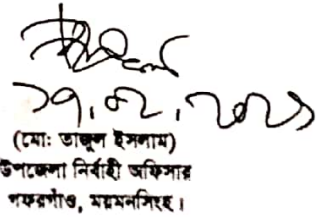 ২৭.০২.২০২৩
(মোঃ তাজুল ইসলাম)
উপজেলা নির্বাহী অফিসার
গফরগাঁও, ময়মনসিংহ।